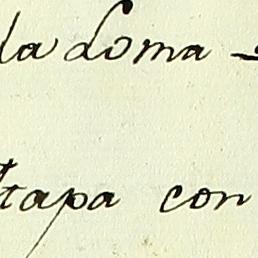 la Loma
tapa con